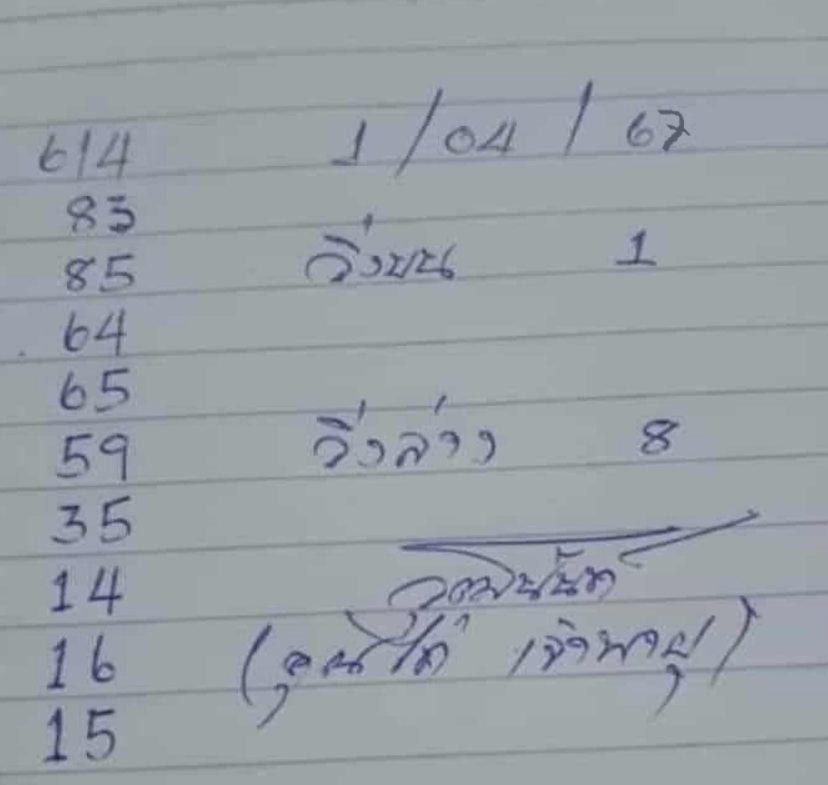 614 1/04/67
83
85 วิ่งบน 1
64
65
59 วิ่งล่าง 8
35
14
16 เจ้าพายุ)
15